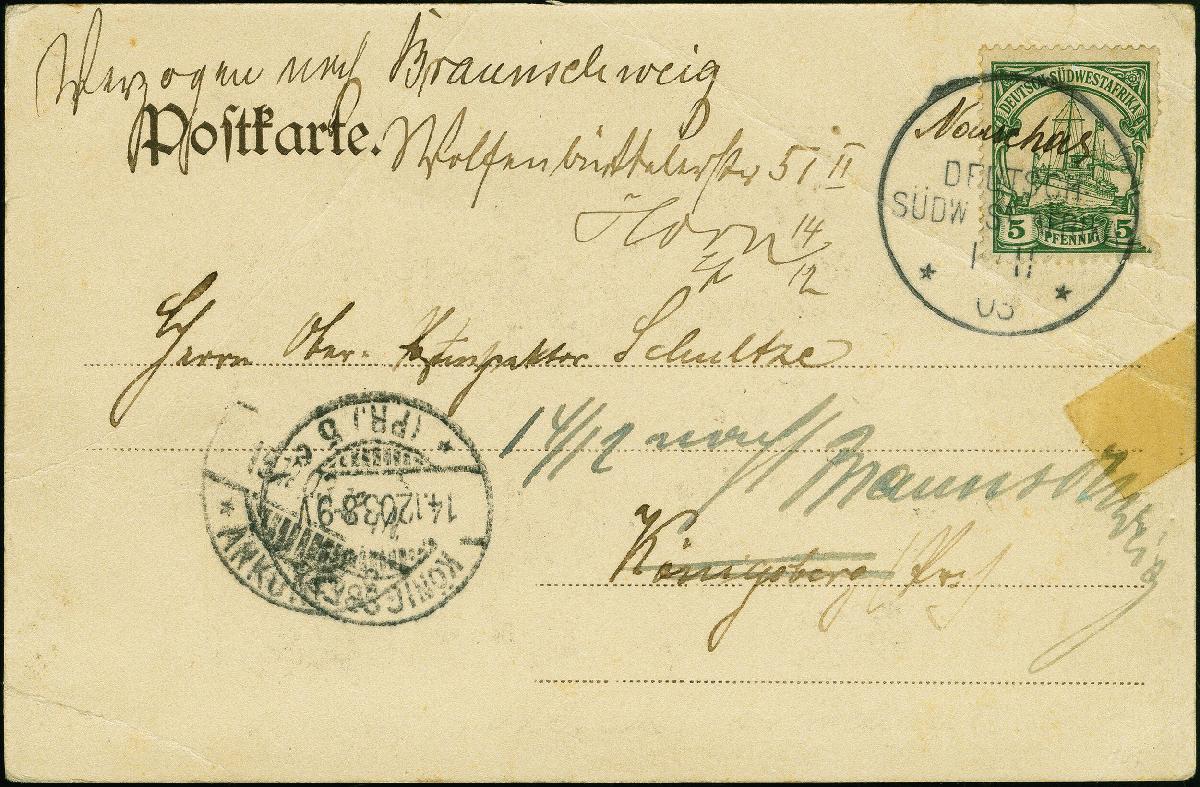 Verzogen nach Braunschweig
Postkarte. Wolfenbüttelerstr 51 II
Horn 14/12
DEUTSCH-SÜDWESTAFRIKA
5 PFENNIG 5
Nauchas
DEUTSCH
SÜDWESTAFRIKA
11
03
Herrn Ober-Postinspektor Schultze
14/12 nach Braunschweig
Königsberg Pr
KÖNIGSBERG
14.12.03.8-9.V.
(PR.) 5 c